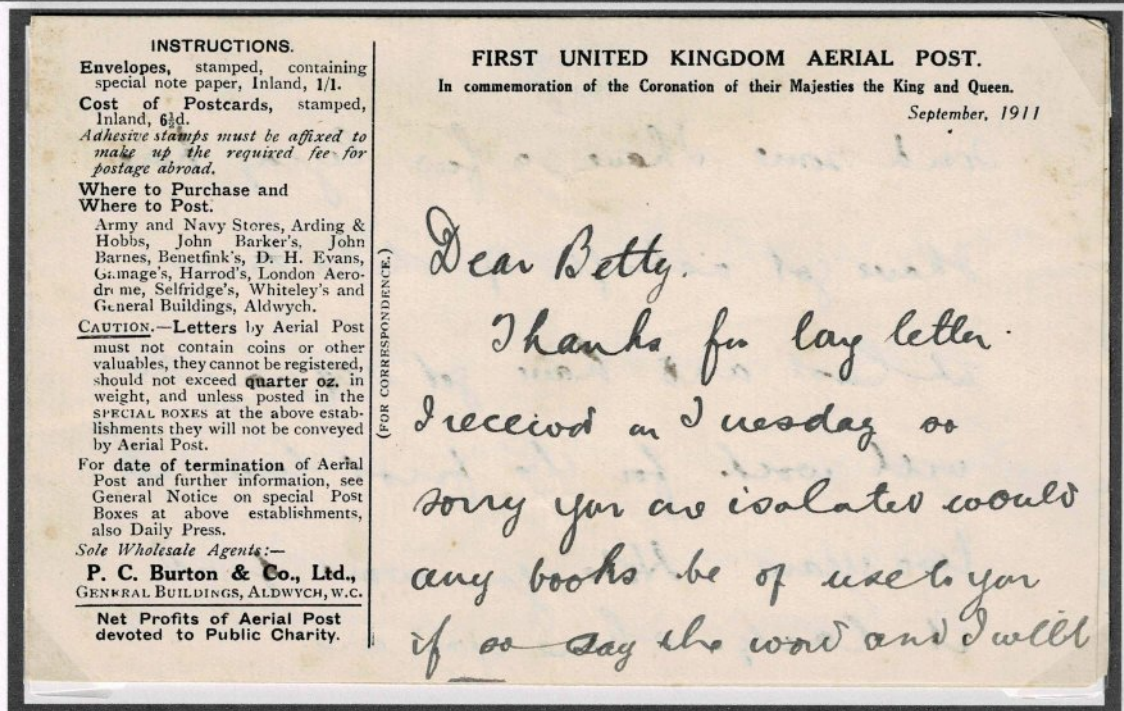 INSTRUCTIONS.
Envelopes, stamped, containing
special note paper, Inland, 1/1.
Cost of Postcards, stamped,
Inland, 6½d.
Adhesive stamps must be affixed to
make up the required fee for
postage abroad.
Where to Purchase and
Where to Post.
Army and Navy Stores, Arding &
Hobbs, John Barker's, John
Barnes, Benetfink's, D. H. Evans,
Gamage's, Harrod's, London Aero-
drome, Selfridge's, Whiteley's and
General Buildings, Aldwych.
CAUTION.—Letters by Aerial Post
must not contain coins or other
valuables, they cannot be registered,
should not exceed quarter oz. in
weight, and unless posted in the
SPECIAL BOXES at the above estab-
lishments they will not be conveyed
by Aerial Post.
For date of termination of Aerial
Post and further information, see
General Notice on special Post
Boxes at above establishments,
also Daily Press.
Sole Wholesale Agents:—
P. C. Burton & Co., Ltd.,
GENERAL BUILDINGS, ALDWYCH, W.C.
Net Profits of Aerial Post
devoted to Public Charity.
(FOR CORRESPONDENCE.)
FIRST UNITED KINGDOM AERIAL POST.
In commemoration of the Coronation of their Majesties the King and Queen.
September, 1911
Dear Betty.
Thanks for letter
I received on Tuesday so
sorry you are isolated would
any books be of use to you
if so say the word and I will